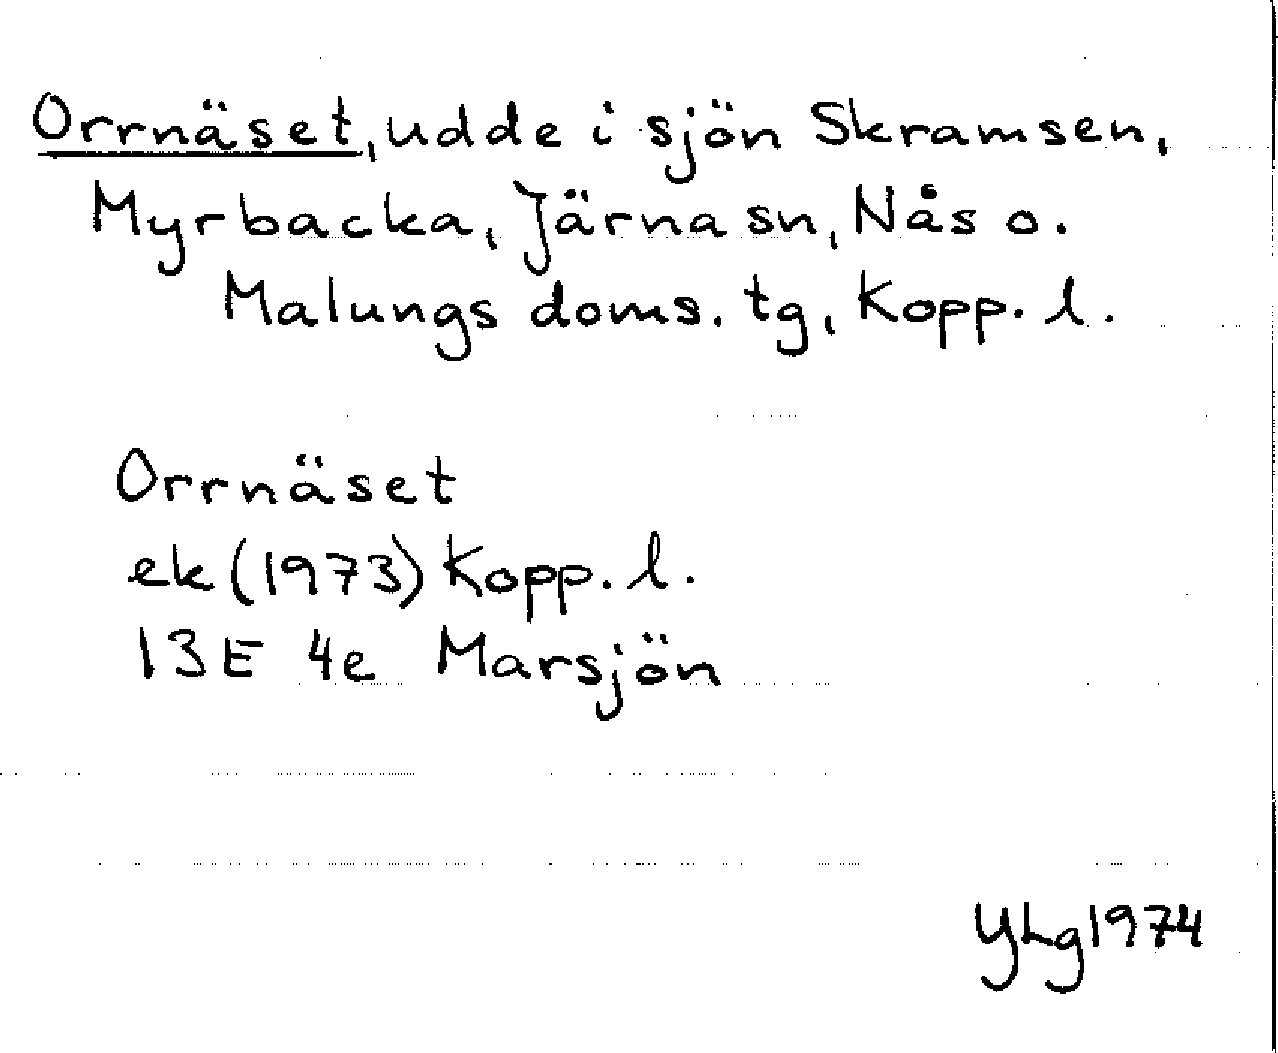 Orrnäset, udde i sjön Skramsen,
Myrbacka, Järna sn, Nås o.
Malungs doms. tg, Kopp. l.
Orrnäset
ek (1973) Kopp. l.
13E 4e Marsjön
YLg 1974